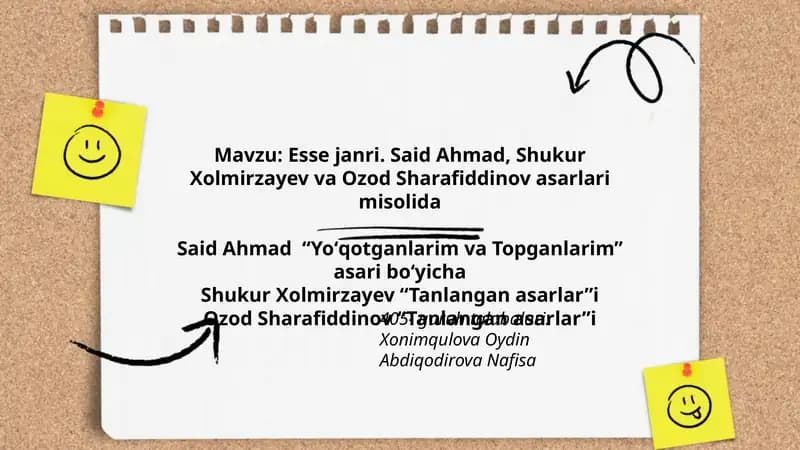 Mavzu: Esse janri. Said Ahmad, Shukur
Xolmirzayev va Ozod Sharafiddinov asarlari
misolida
Said Ahmad “Yo‘qotganlarim va Topganlarim”
asari bo‘yicha
Shukur Xolmirzayev “Tanlangan asarlar”i
Ozod Sharafiddinov “Tanlangan asarlar”i
Xonimqulova Oydin
Abdiqodirova Nafisa